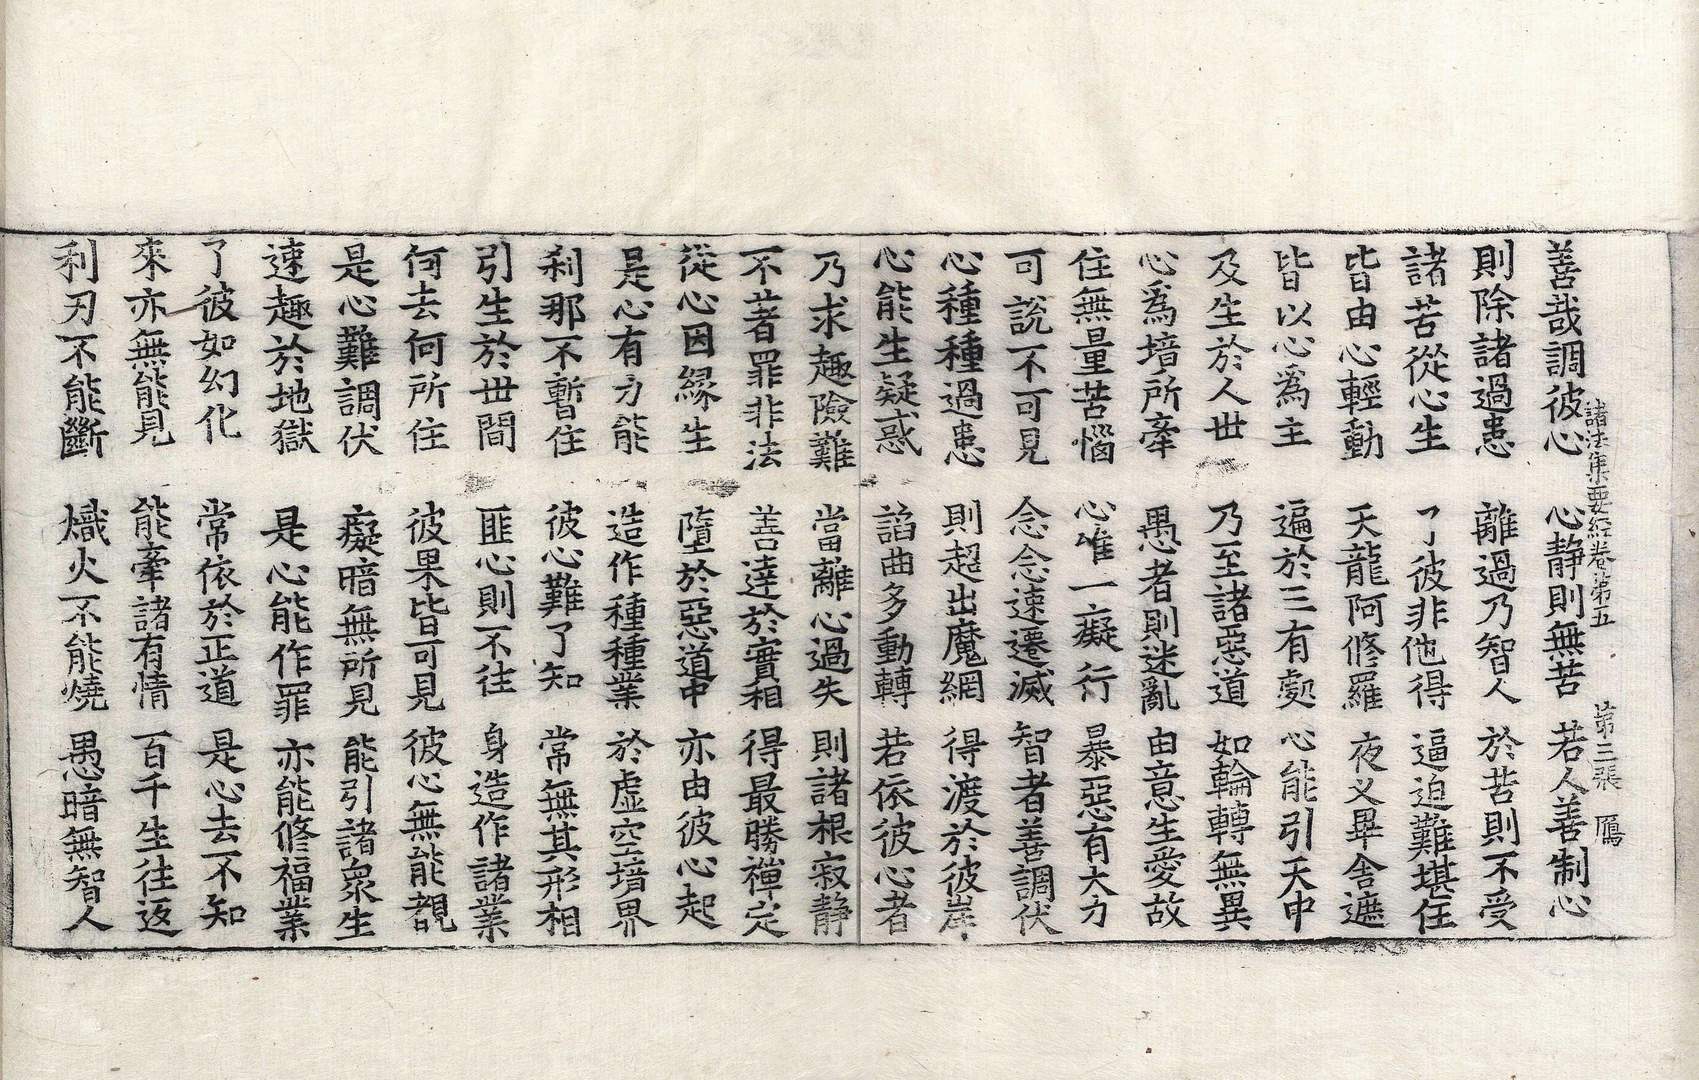 諸法集要經卷第五 第三張 鴈
善哉調彼心 心静則無苦 若人善制心
則除諸過患 離過乃智人 於苦則不受
諸苦從心生 了彼非他得 逼迫難堪任
皆由心輕動 天龍阿修羅 夜叉畢舎遮
皆以心爲主 遍於三有處 心能引天中
及生於人世 乃至諸惡道 如輪轉無異
心爲境所牽 愚者則迷亂 由意生愛故
住無量苦惱 心唯一癡行 暴惡有大力
可説不可見 念念速遷滅 智者善調伏
心種種過患 則超出魔網 得渡於彼岸
心能生疑惑 諂曲多動轉 若依彼心者
乃求趣險難 當離心過失 則諸根寂静
不著罪非法 善達於實相 得最勝禪定
從心因縁生 墮於惡道中 亦由彼心起
是心有力能 造作種種業 於虚空境界
刹那不暫住 彼心難了知 常無其形相
引生於世間 匪心則不往 身造作諸業
何去何所住 彼果皆可見 彼心無能覩
是心難調伏 癡暗無所見 能引諸衆生
速趣於地獄 是心能作罪 亦能修福業
了彼如幻化 常依於正道 是心去不知
來亦無能見 能牽諸有情 百千生往返
利刃不能斷 熾火不能燒 愚暗無智人